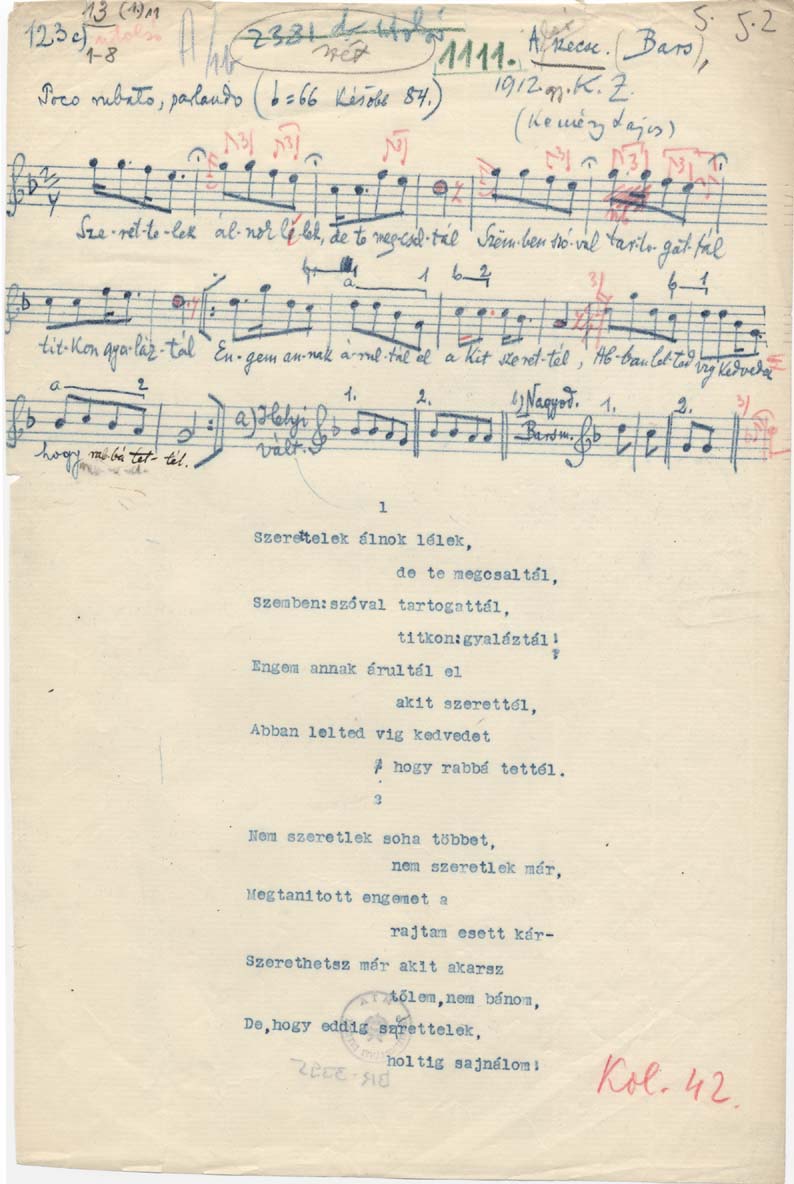 13 (1) 11
123 c) utolsó
1-8
A/IIb
2381 d utolsó
vét
1111.
(Bars),
5. 5.2
1912. gy. K. Z.
(Kemény Lajos)
Poco rubato, parlando (♩=66 Később 84.)
Sze-ret-te-lek ál-nok lé-lek, de te meg-csal-tál Szëm-ben szó-val tar-to-gat-tál
a 1 b 2 3) b 1
tit-kon gya-láz-tál En-gem an-nak á-rul-tál el a kit szeret-tél, Ab-ban lel-ted vig kedvedet
a 2 a) Helyi vált. 1. 2. b) Nagyod. Barsm. 1. 2. 3)
hogy rab-bá tet-tél.
1
Szerettelek álnok lélek,
de te megcsaltál,
Szemben:szóval tartogattál,
titkon:gyaláztál!
Engem annak árultál el
akit szerettél,
Abban lelted vig kedvedet
hogy rabbá tettél.
2
Nem szeretlek soha többet,
nem szeretlek már,
Megtanitott engemet a
rajtam esett kár-
Szerethetsz már akit akarsz
tőlem,nem bánom,
De,hogy eddig szerettelek,
holtig sajnálom!
Kol. 42.